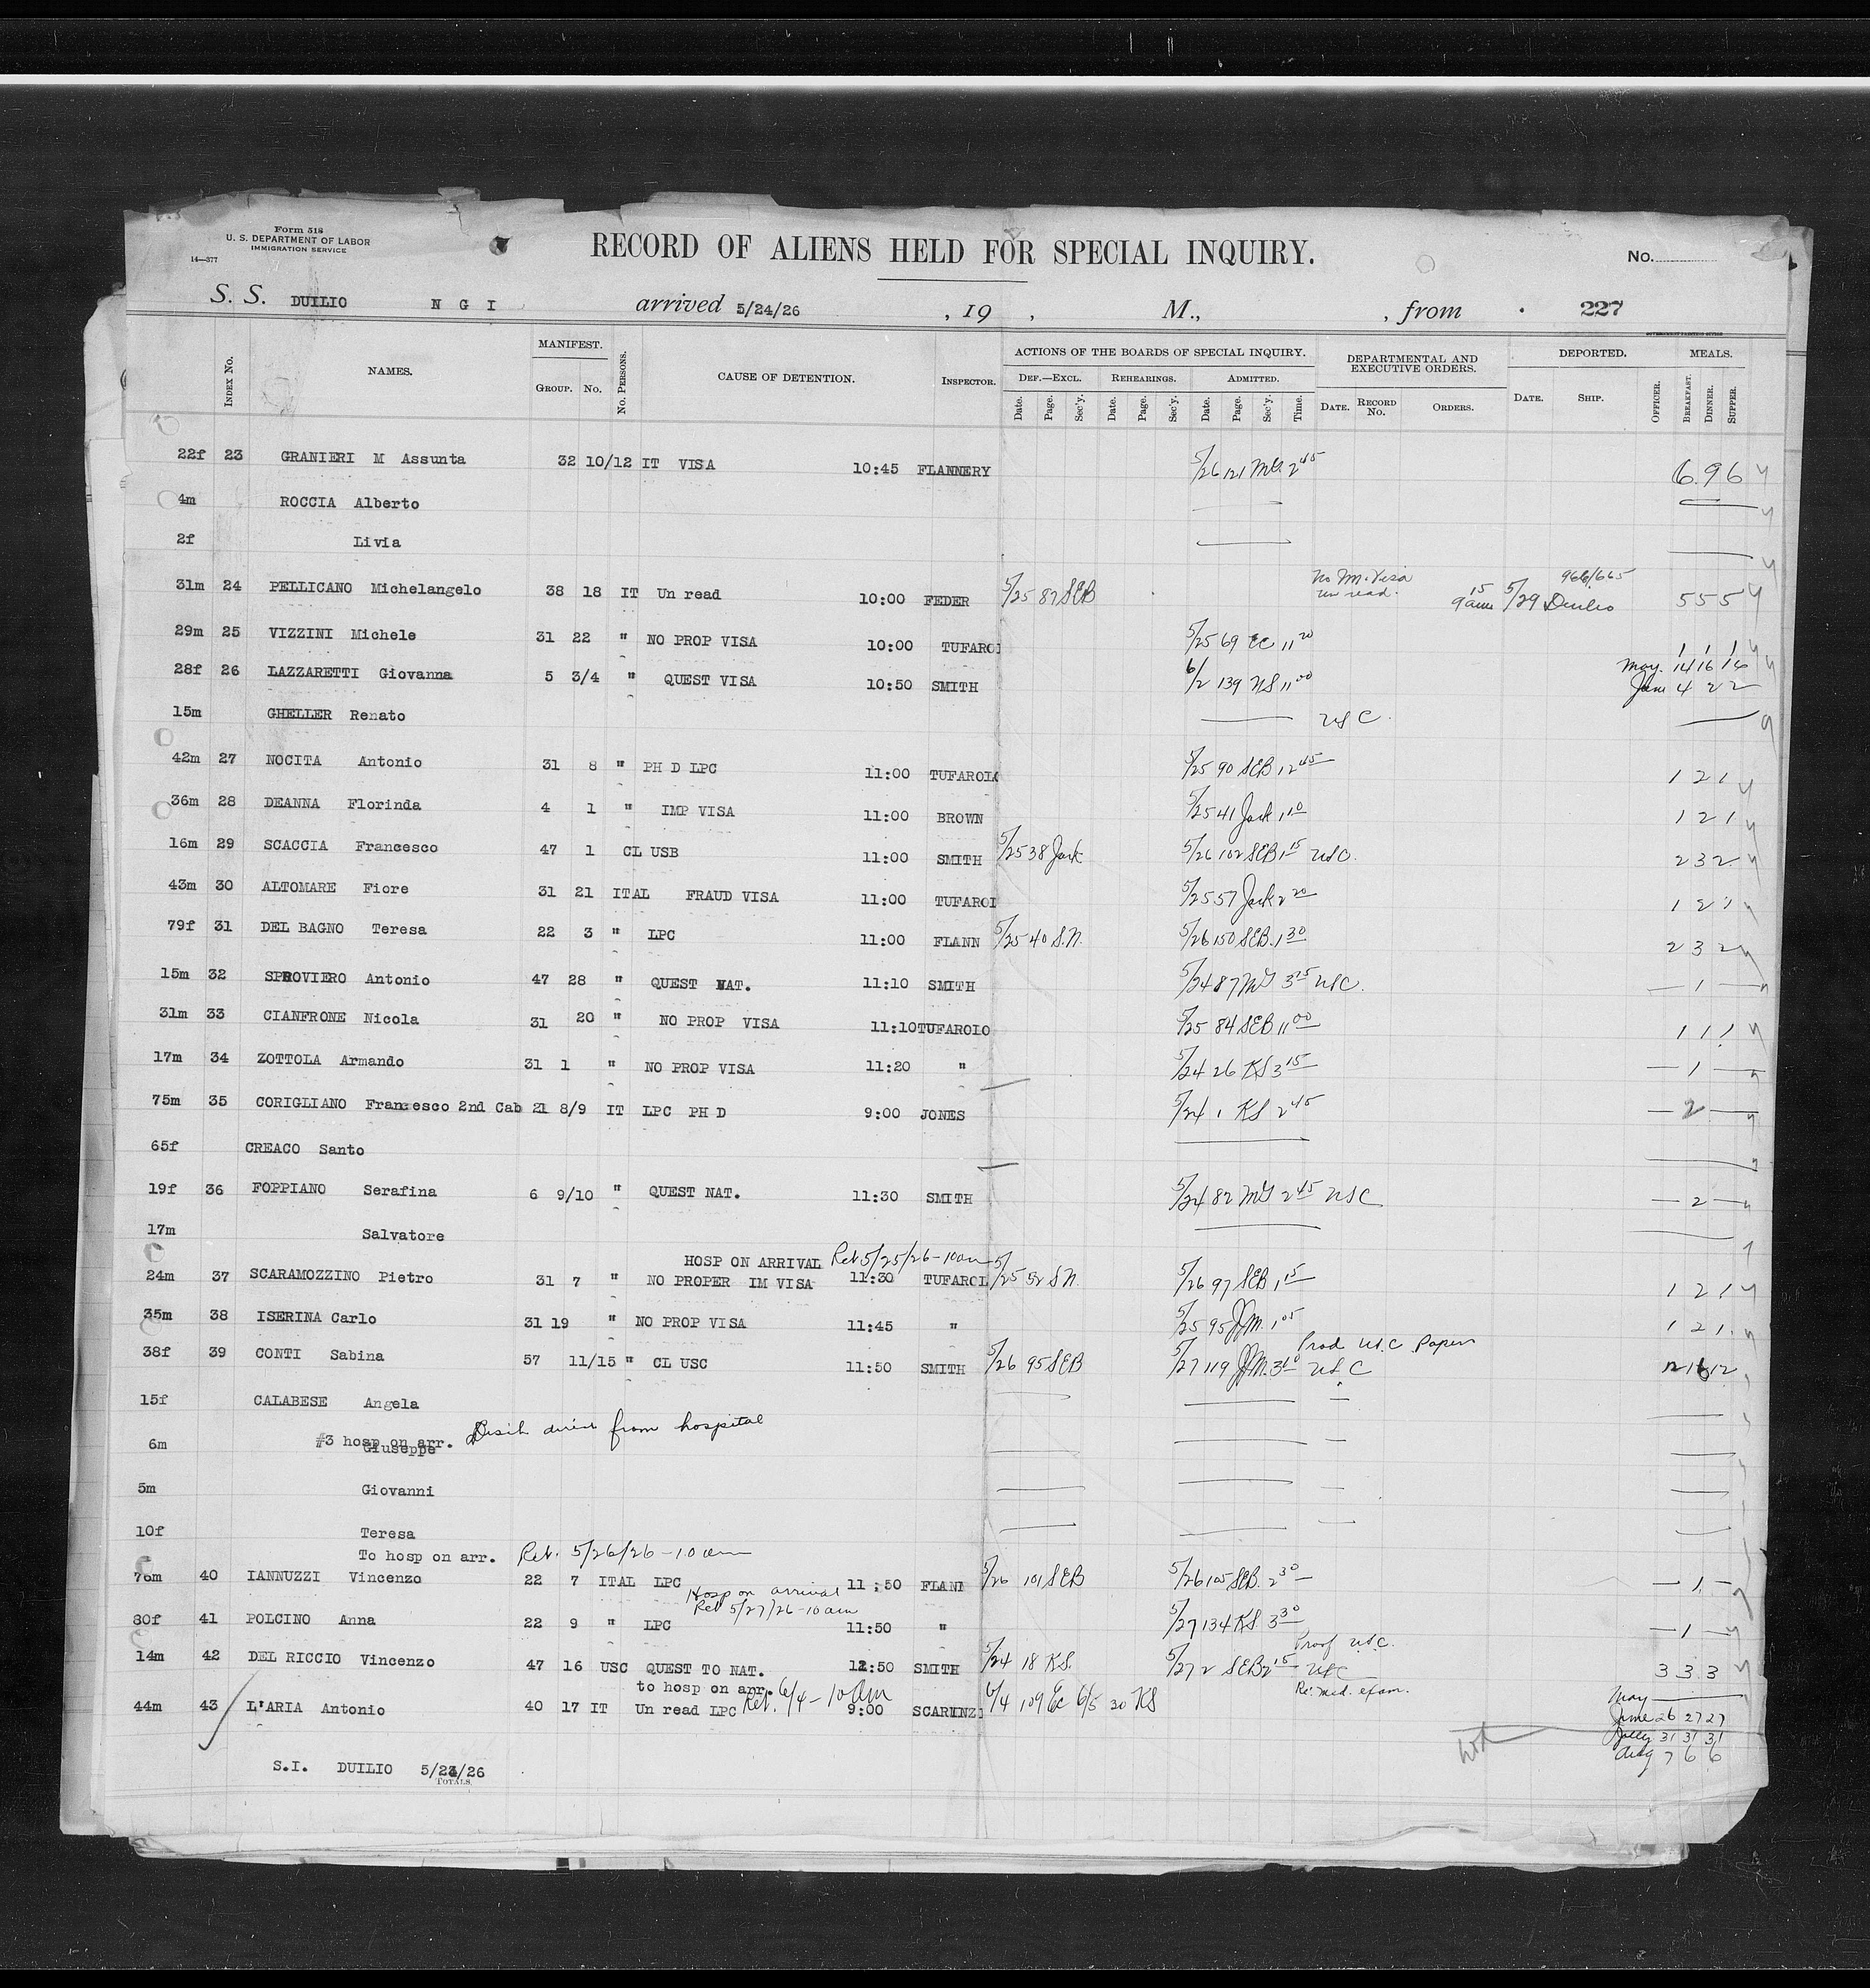 Form 518
U. S. DEPARTMENT OF LABOR
IMMIGRATION SERVICE
14—377
RECORD OF ALIENS HELD FOR SPECIAL INQUIRY.
No.
S. S. DUILIO N G I arrived 5/24/26 , 19 , M., , from 227
INDEX No. NAMES. MANIFEST. GROUP. No. No. PERSONS. CAUSE OF DETENTION. INSPECTOR. ACTIONS OF THE BOARDS OF SPECIAL INQUIRY. DEF.—EXCL. REHEARINGS. ADMITTED. DEPARTMENTAL AND EXECUTIVE ORDERS. DEPORTED. MEALS.
Date. Page. Sec'y. Date. Page. Sec'y. Date. Page. Sec'y. Time. DATE. RECORD No. ORDERS. DATE. SHIP. OFFICER. BREAKFAST. DINNER. SUPPER.
22f 23 GRANIERI M Assunta 32 10/12 IT VISA 10:45 FLANNERY 5/26 121 2 45 6 9 6
4m ROCCIA Alberto
2f Livia
No Im. Visa 966/665
31m 24 PELLICANO Michelangelo 38 18 IT Un read 10:00 FEDER 5/25 87 SEB un read. 15 9am 5/29 Duilio 5 5 5
29m 25 VIZZINI Michele 31 22 " NO PROP VISA 10:00 TUFAROI 5/25 69 EC 11 20 1 1 1
28f 26 LAZZARETTI Giovanna 5 3/4 " QUEST VISA 10:50 SMITH 6/2 139 NS 11 00 May. 14 16 16
June 4 2 2
15m GHELLER Renato USC.
42m 27 NOCITA Antonio 31 8 " PH D LPC 11:00 TUFAROLO 5/25 90 SEB 12 45 1 2 1
36m 28 DEANNA Florinda 4 1 " IMP VISA 11:00 BROWN 5/25 41 Jack 1 10 1 2 1
16m 29 SCACCIA Francesco 47 1 CL USB 11:00 SMITH 5/25 38 Jack 5/26 102 SEB 1 15 USC. 2 3 2
43m 30 ALTOMARE Fiore 31 21 ITAL FRAUD VISA 11:00 TUFAROI 5/25 57 Jack 2 20 1 2 1
79f 31 DEL BAGNO Teresa 22 3 " LPC 11:00 FLANN 5/25 40 S.N. 5/26 150 SEB. 1 30 2 3 2
15m 32 SPROVIERO Antonio 47 28 " QUEST NAT. 11:10 SMITH 5/24 87 3 15 USC. — 1 —
31m 33 CIANFRONE Nicola 31 20 " NO PROP VISA 11:10 TUFAROLO 5/25 84 SEB 11 00 1 1 1
17m 34 ZOTTOLA Armando 31 1 " NO PROP VISA 11:20 " 5/24 26 KS 3 15 — 1 —
75m 35 CORIGLIANO Francesco 2nd Cab 21 8/9 IT LPC PH D 9:00 JONES 5/24 1 KS 2 45 — 2 —
65f CREACO Santo
19f 36 FOPPIANO Serafina 6 9/10 " QUEST NAT. 11:30 SMITH 5/24 82 2 45 USC — 2 —
17m Salvatore
HOSP ON ARRIVAL Ret 5/25/26 - 10am
24m 37 SCARAMOZZINO Pietro 31 7 " NO PROPER IM VISA 11:30 TUFAROL 5/25 52 S.N. 5/26 97 SEB 1 15 1 2 1
35m 38 ISERINA Carlo 31 19 " NO PROP VISA 11:45 " 5/25 95 JM. 1 05 1 2 1
Prod. U.S.C. Paper
38f 39 CONTI Sabina 57 11/15 " CL USC 11:50 SMITH 5/26 95 SEB 5/27 119 JM. 3 10 U.S.C 12 16 12
15f CALABESE Angela
#3 hosp on arr. from hospital
6m Giuseppe
5m Giovanni
10f Teresa
To hosp on arr. Ret. 5/26/26 - 10 am
76m 40 IANNUZZI Vincenzo 22 7 ITAL LPC 11:50 FLANN 5/26 101 SEB 5/26 105 SEB. 2 30 — 1 —
Hosp on arrival
Ret 5/27/26 - 10am
80f 41 POLCINO Anna 22 9 " LPC 11:50 " 5/27 134 KS. 3 30 — 1 —
Proof U.S.C.
14m 42 DEL RICCIO Vincenzo 47 16 USC QUEST TO NAT. 12:50 SMITH 5/24 18 K.S. 5/27 2 SEB 2 15 USC 3 3 3
to hosp on arr. Ret. 6/4 - 10 Am Re. med. exam.
44m 43 L'ARIA Antonio 40 17 IT Un read LPC 9:00 SCARINZI 6/4 109 Ec 6/5 30 KS May —
June 26 27 27
July 31 31 31
Aug 7 6 6
S.I. DUILIO 5/24/26
TOTALS.